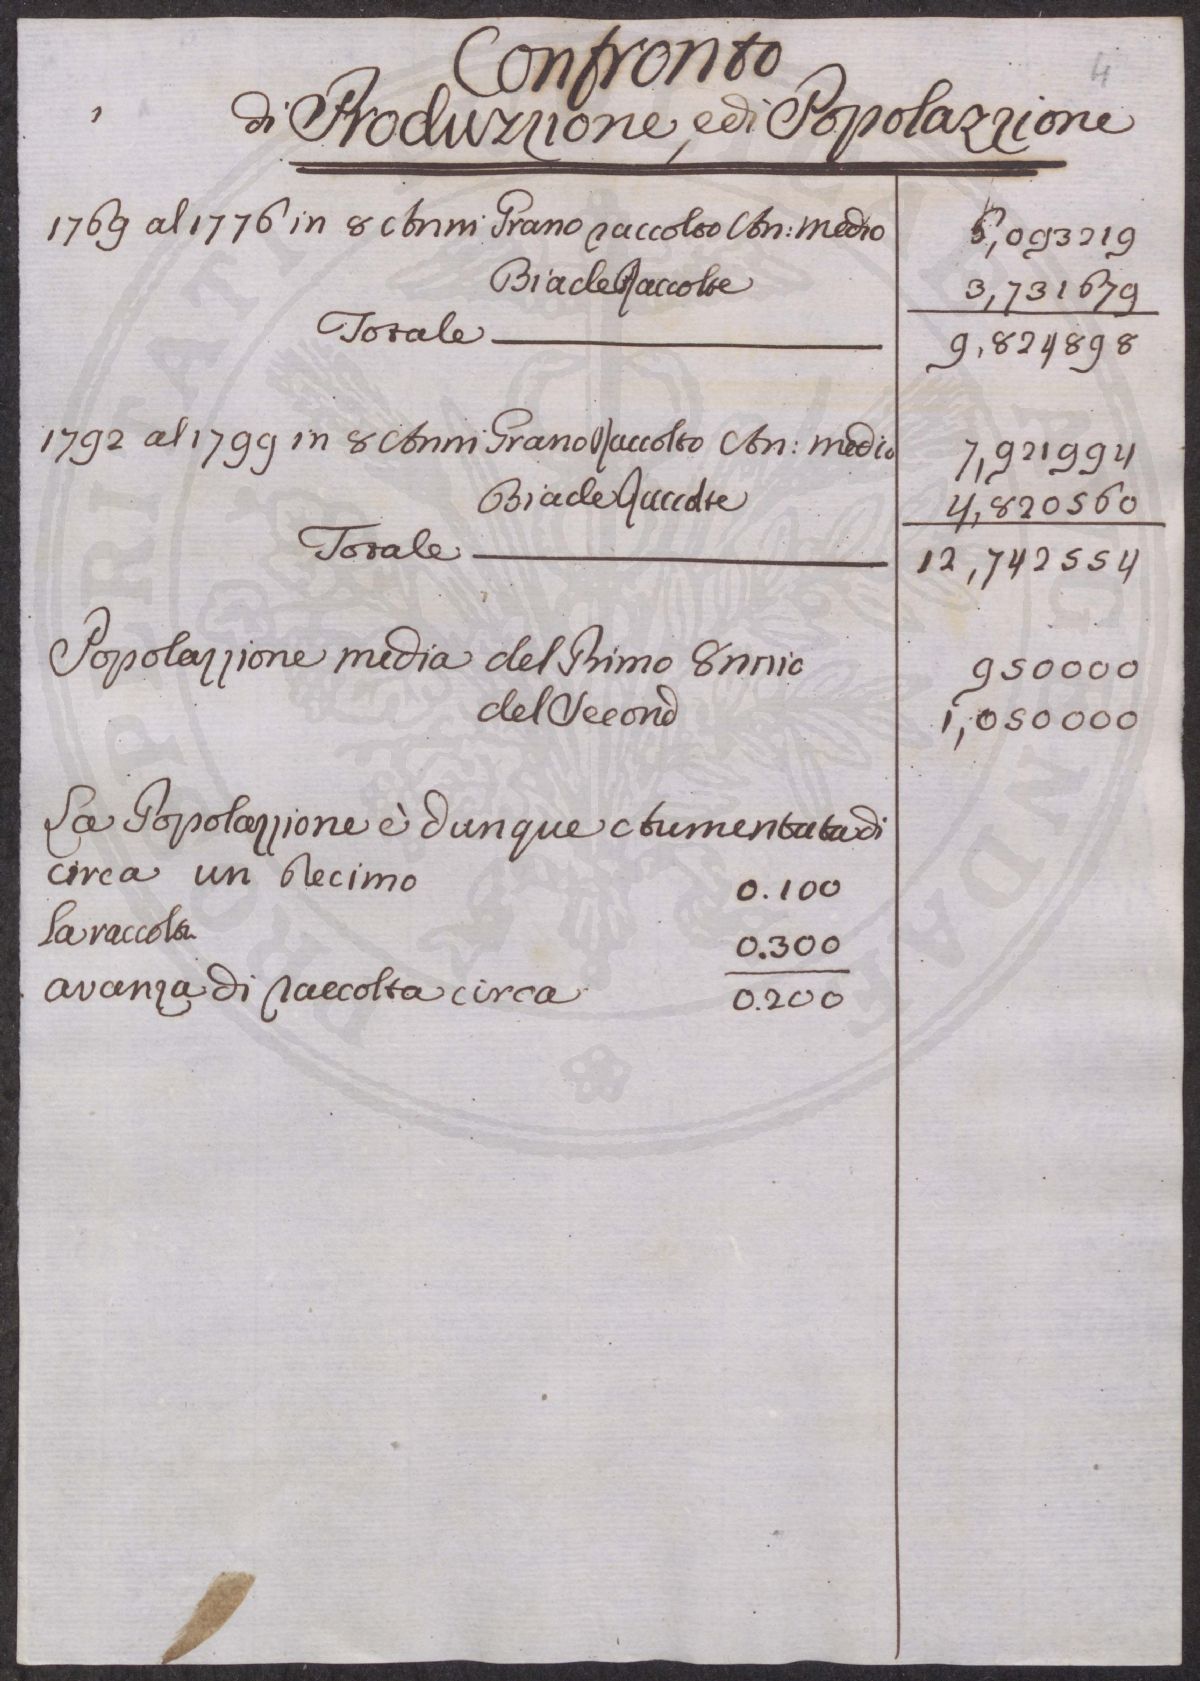 4
Confronto
di Produzzione, e di Popolazzione
1769 al 1776 in 8 Anni Grano raccolto An: medio 6,093219
Biade Raccolte 3,731679
Totale 9,824898
1792 al 1799 in 8 Anni Grano Raccolto An: medio 7,921994
Biade Raccolte 4,820560
Totale 12,742554
Popolazzione media del Primo 8nnio 950000
del Second 1,050000
La Popolazzione è dunque Aumentata di
circa un Decimo 0.100
La raccolta 0.300
avanza di raccolta circa 0.200
PROPRIETATI